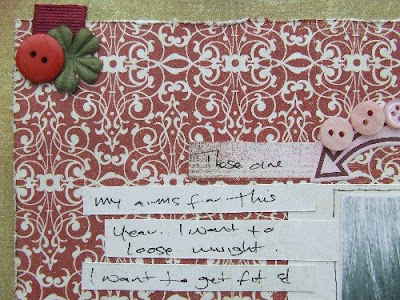 Those are
my aims for this
Year.. I want to
loose weight.
I want to get fit &